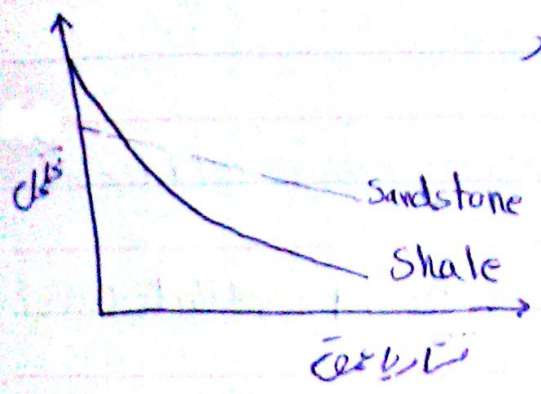 تخلخل
Sandstone
Shale
فشار یا عمق